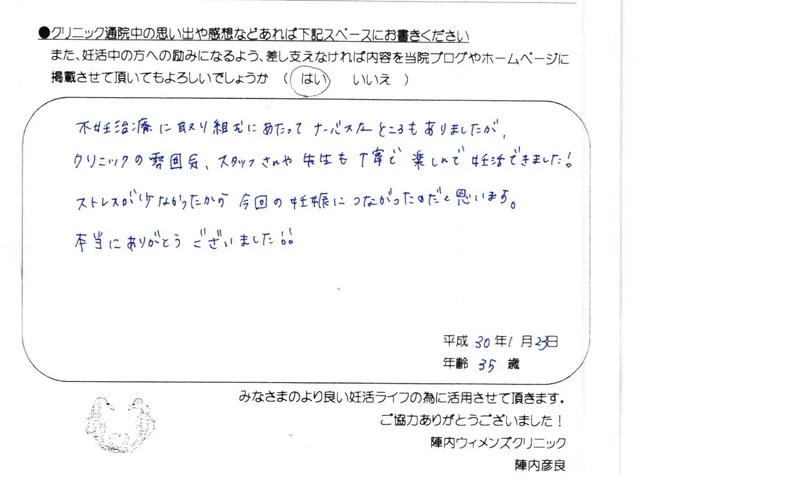 ●クリニック通院中の思い出や感想などあれば下記スペースにお書きください
また、妊活中の方への励みになるよう、差し支えなければ内容を当院ブログやホームページに
掲載させて頂いてもよろしいでしょうか （ はい　いいえ ）
不妊治療に取り組むにあたって ナーバスなところもありましたが、
クリニックの雰囲気、スタッフさんや先生も丁寧で 楽しんで妊活できました!
ストレスが少なかったから 今回の妊娠につながったのだと思います。
本当にありがとうございました!!
平成 30 年 1 月 23日
年齢 35 歳
みなさまのより良い妊活ライフの為に活用させて頂きます。
ご協力ありがとうございました！
陣内ウィメンズクリニック
陣内彦良